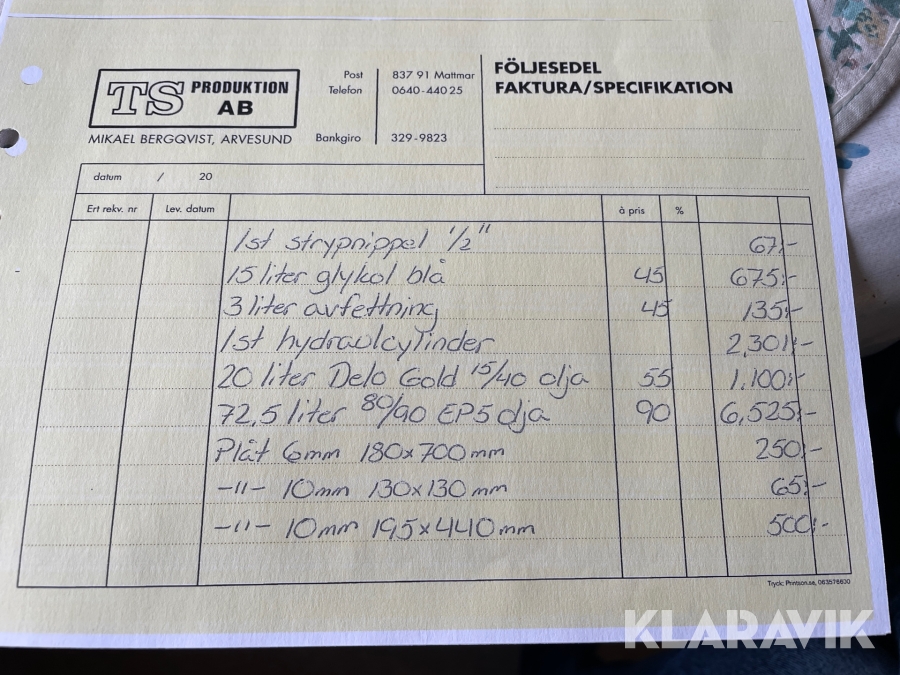 TS PRODUKTION AB
MIKAEL BERGQVIST, ARVESUND
Post 837 91 Mattmar
Telefon 0640-440 25
Bankgiro 329-9823
FÖLJESEDEL
FAKTURA/SPECIFIKATION
datum / 20
Ert rekv. nr Lev. datum à pris %
1st strypnippel 1/2" 67:-
15 liter glykol blå 45 675:-
3 liter avfettning 45 135:-
1st hydraulcylinder 2,301:-
20 liter Delo Gold 15/40 olja 55 1,100:-
72,5 liter 80/90 EP5 olja 90 6,525:-
Plåt 6mm 180x700mm 250:-
-11- 10mm 130x130mm 65:-
-11- 10mm 195x440mm 500:-
Tryck: Printson.se, 063576630
KLARAVIK